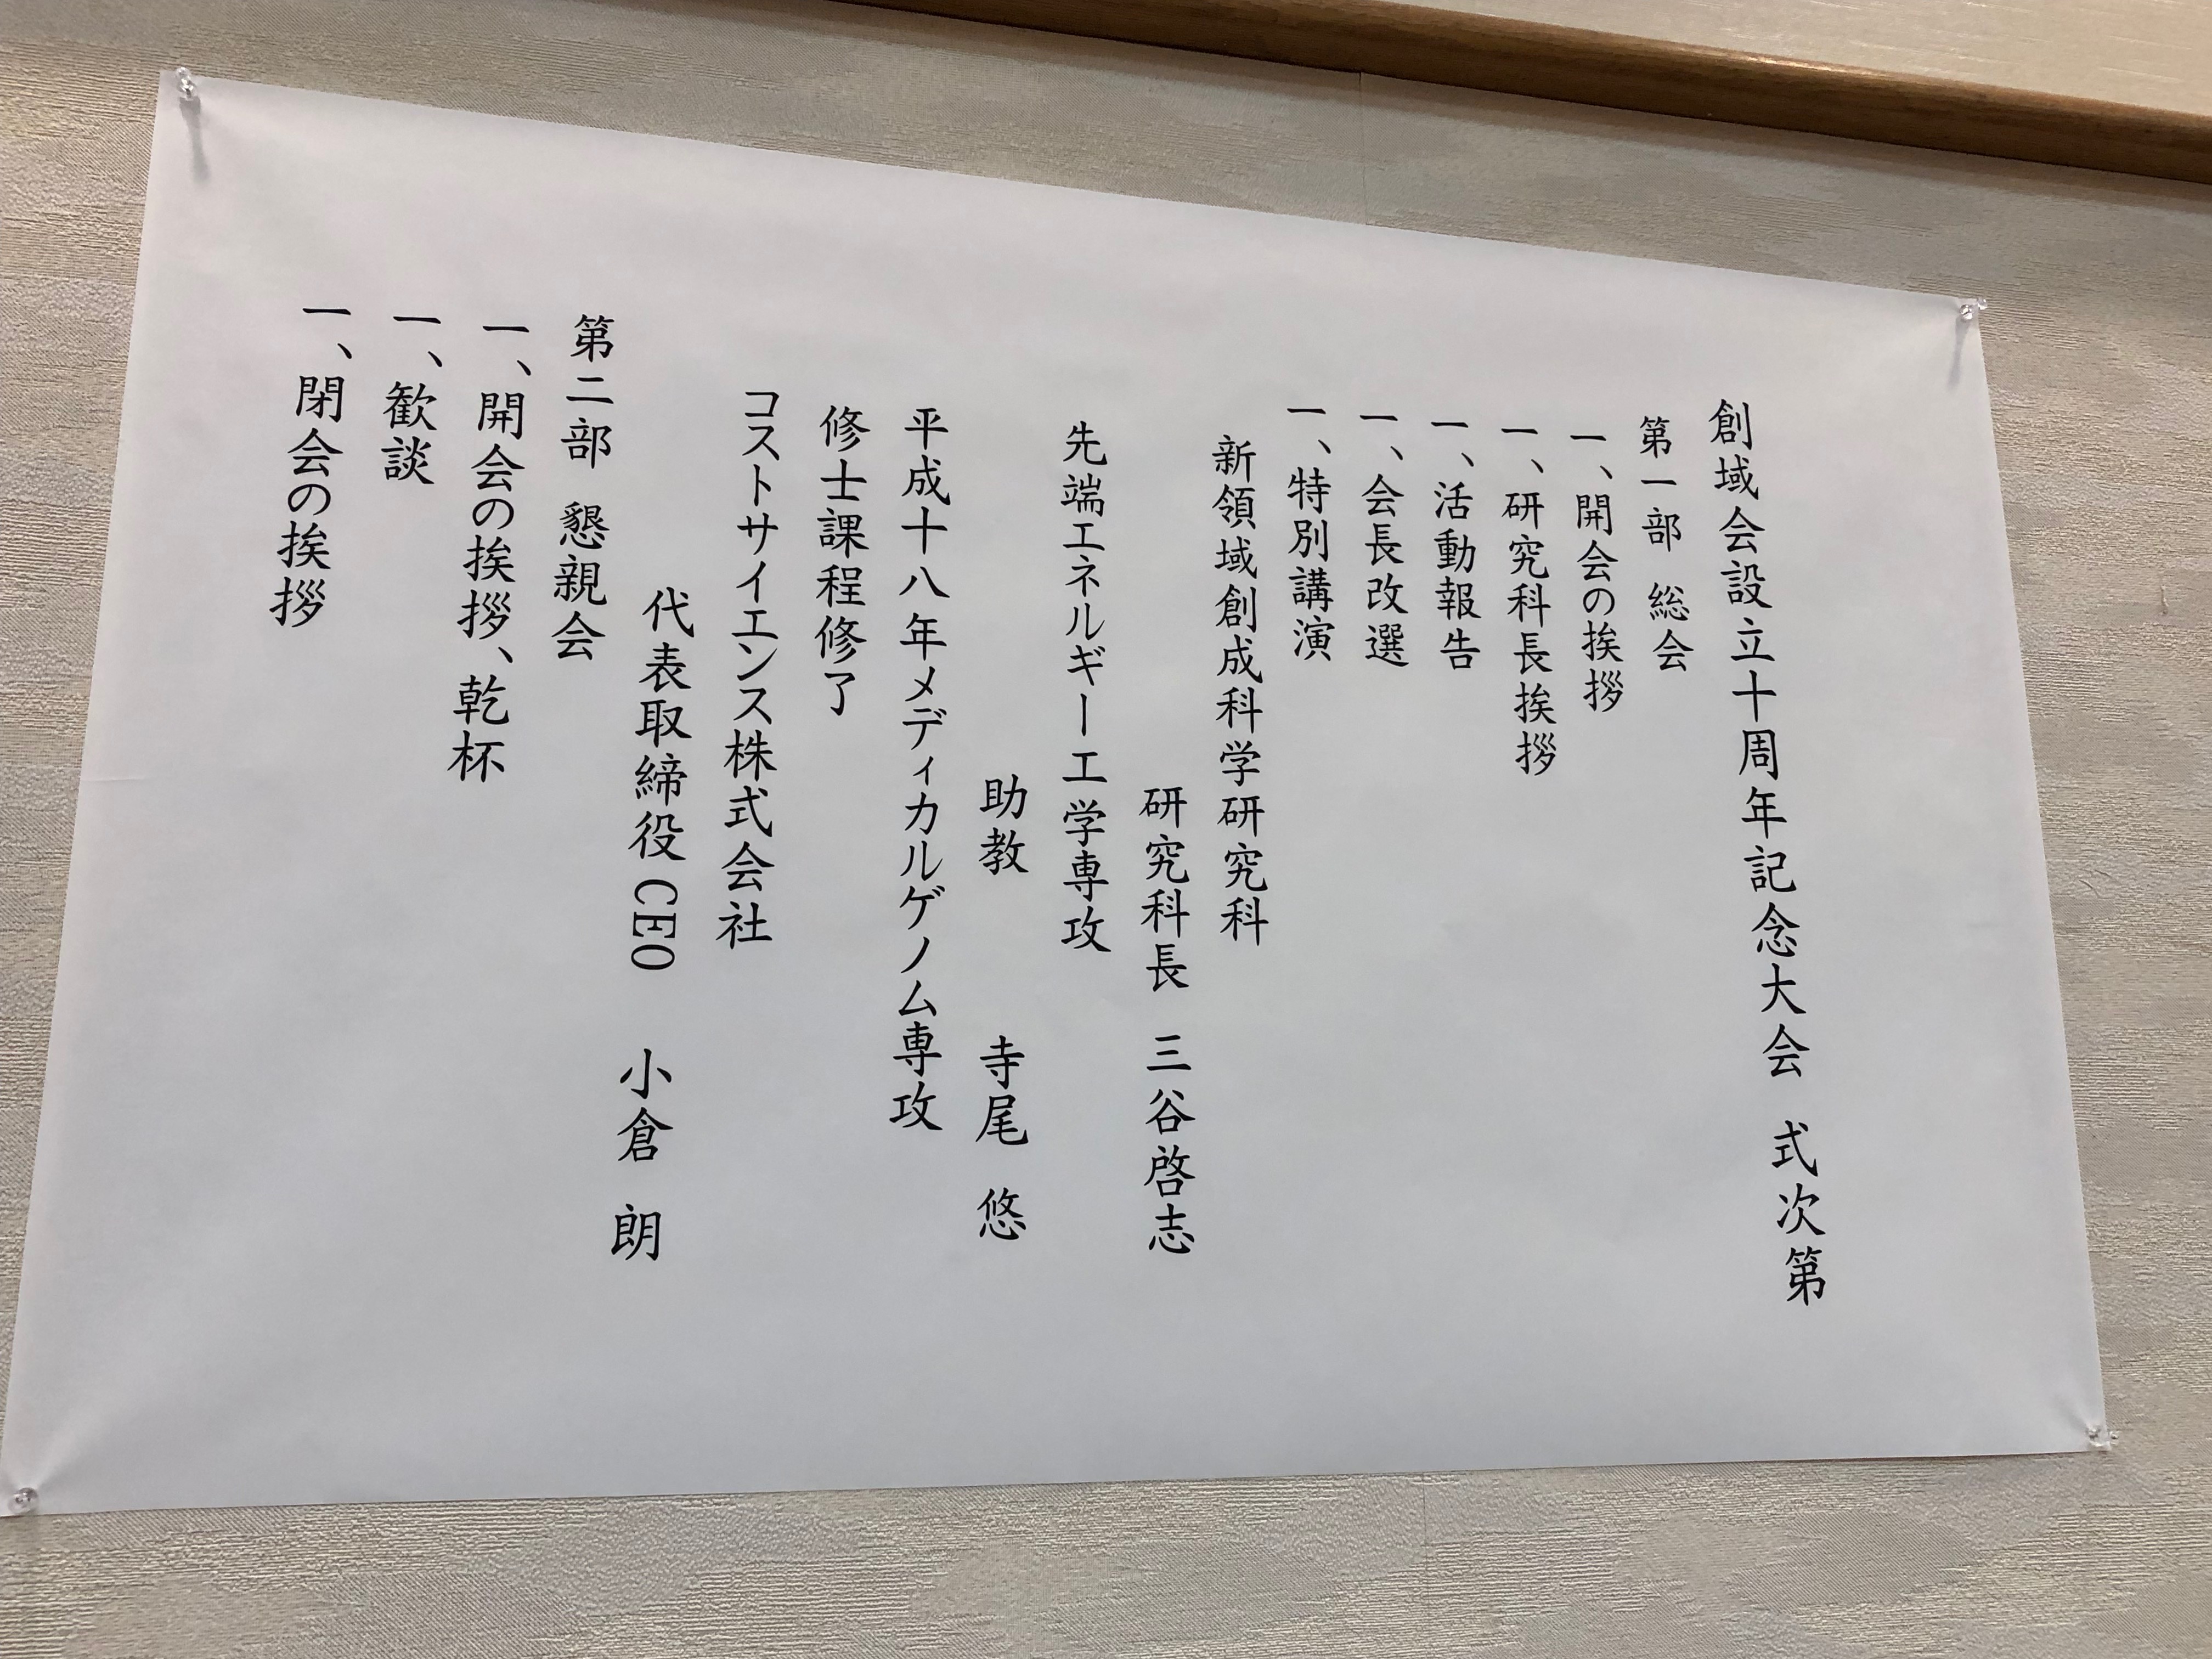 創域会設立十周年記念大会 式次第
第一部 総会
一、開会の挨拶
一、研究科長挨拶
一、活動報告
一、会長改選
一、特別講演
新領域創成科学研究科
研究科長 三谷啓志
先端エネルギー工学専攻
助教 寺尾 悠
平成十八年メディカルゲノム専攻
修士課程修了
コストサイエンス株式会社
代表取締役CEO 小倉 朗
第二部 懇親会
一、開会の挨拶、乾杯
一、歓談
一、閉会の挨拶